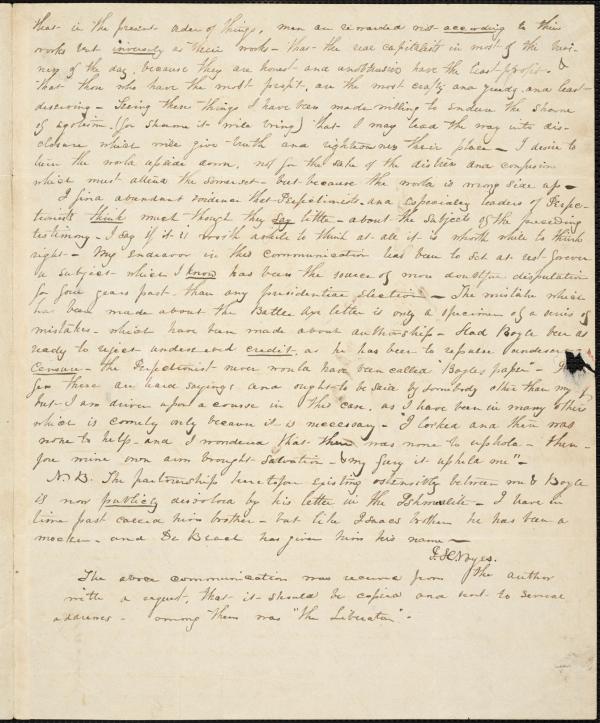 that in the present order of things, men are rewarded not according to their
works but inversely as their works - that the real capitalists in most of the busi-
ness of the day, because they are honest and unobtrusive have the least profit - &
that those who have the most profit, are the most crafty and greedy and least
deserving - Seeing these things I have been made willing to endure the shame
of egotism (for shame it will bring) that I may lead the way into dis-
closures which will give truth and righteousness their place - I desire to
turn the world upside down, not for the sake of the distress and confusion
which must attend the somerset - but because the world is wrong side up -
I find abundant evidence that Perfectionists and especially leaders of Perfec-
tionists think much though they say little - about the subjects of the preceding
testimony - I say if it is worth while to think at all it is whorth while to think
right - My endeavor in this communication has been to set at rest forever
a subject - which I know has been the source of more doubtful disputation
for four years past, than any presidential election - The mistake which
has been made about the Battle Axe letter is only a specimen of a series of
mistakes - which have been made about authorship - Had Boyle been as
ready to reject undeserved credit, as he has been to repulse undeserved
censure - the Perfectionist never would have been called Boyles paper -
these are hard sayings and ought to be said by somebody other than my
but I am driven upon a course in this case, as I have been in many others
which is comely only because it is necessary - I looked and there was
none to help - and I wondered that there was none to uphold - there-
fore mine own arm brought salvation - & my fury it upheld me" -
N.B. The partnership heretofore existing ostensibly between me & Boyle
is now publicly dissolved by his letter in the Ishmaelite - I have in
time past called him brother - but like Isaacs brother he has been a
mocker - and De Beach has given him his name -
J. H. Noyes.
The above communication was received from the author
with a request, that it should be copied and sent to several
addresses - among them was "the Liberator" -